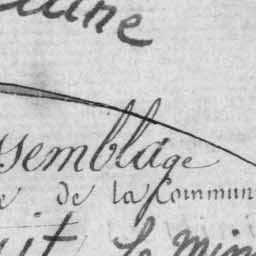 ssemblage
e de la Commun
it le min